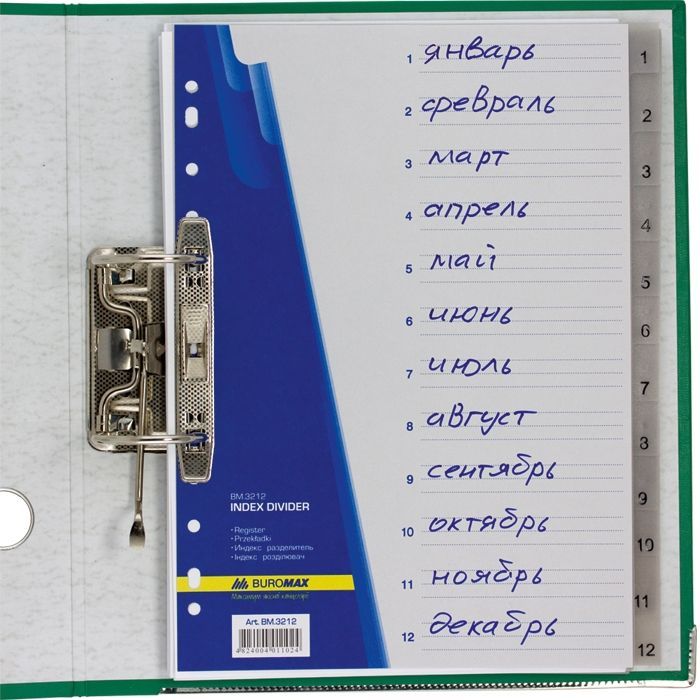 1 январь
2 февраль
3 март
4 апрель
5 май
6 июнь
7 июль
8 август
9 сентябрь
10 октябрь
11 ноябрь
12 декабрь
1
2
3
4
5
6
7
8
9
10
11
12
BM.3212
INDEX DIVIDER
• Register
• Przekładki
• Индекс разделитель
• Індекс розділювач
BUROMAX
Art. BM.3212
4824004011024